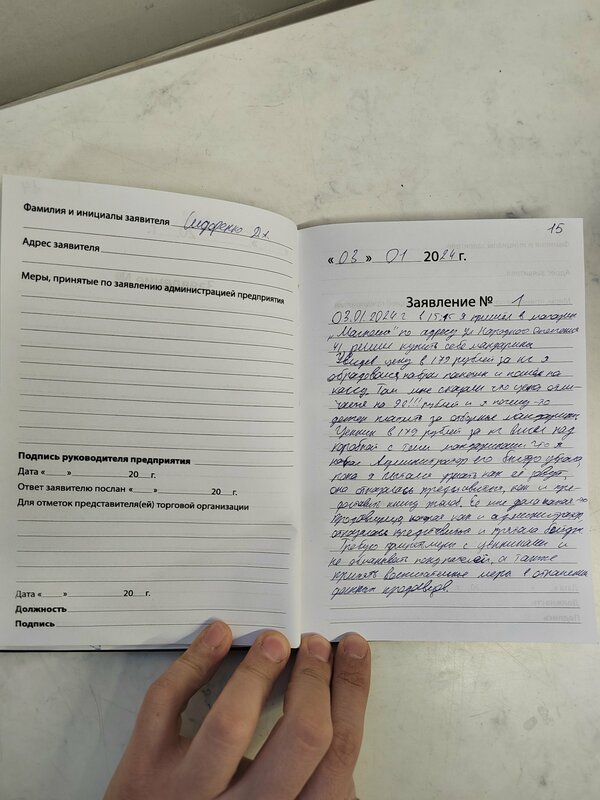 Фамилия и инициалы заявителя Сидоренко Д.А.
Адрес заявителя
Меры, принятые по заявлению администрацией предприятия
Подпись руководителя предприятия
Дата «____» ________ 20___г.
Ответ заявителю послан «____» ________ 20___г.
Для отметок представителя(ей) торговой организации
Дата «____» ________ 20___г.
Должность
Подпись
15
« 03 » 01 2024 г.
Заявление № 1
03.01.2024 г в 15:15 я пришёл в магазин
"Магнит" по адресу ул Народного Ополчения
41 решил купить себе мандарины
Увидев цену в 179 рублей за кг я
обрадовался набрал пакетик и пошёл на
кассу. Там мне сказали что цена отли-
чается на 90!!! рублей и я почему-то
должен платить за отборные мандарины.
Ценник в 179 рублей за кг висел над
коробкой с теми мандаринами что я
набрал Администратор его быстро убрала,
пока я пытался узнать как её зовут,
она отказалась представиться, как и пре-
доставить книгу жалоб. Её мне дала какая-то
продавщица, которая как и администратор,
отказалась представиться и
Требую с ценниками и
не обманывать покупателей, а также
принять воспитательные меры в отношении
данных продавцов.